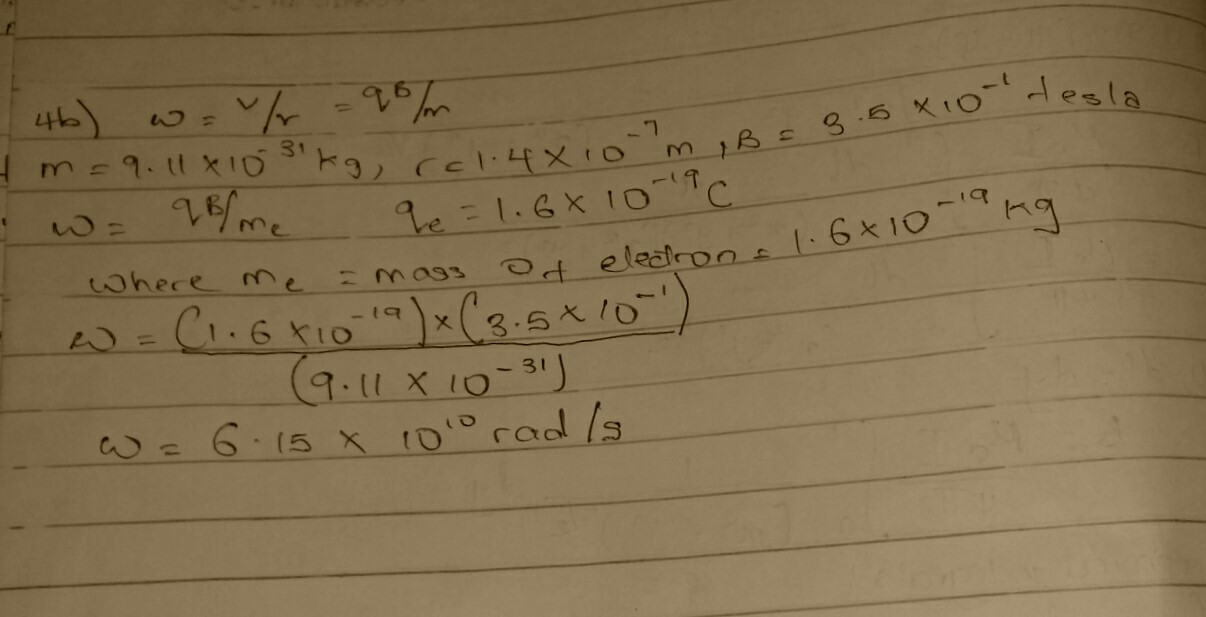 4b) w = v/r = qB/m
m = 9.11 x 10^-31 kg, r = 1.4 x 10^-7 m, B = 3.5 x 10^-1 tesla
w = qB/me qe = 1.6 x 10^-19 C
where me = mass of electron = 1.6 x 10^-19 kg
w = (1.6 x 10^-19) x (3.5 x 10^-1)
(9.11 x 10^-31)
w = 6.15 x 10^10 rad/s